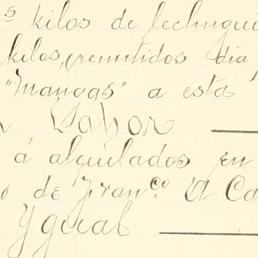 s kilos de lechugui
kilos, remitidos dia
"Mangas" a esta
Labor
á alquilados en
o de Fran.co A Ca
Ygual